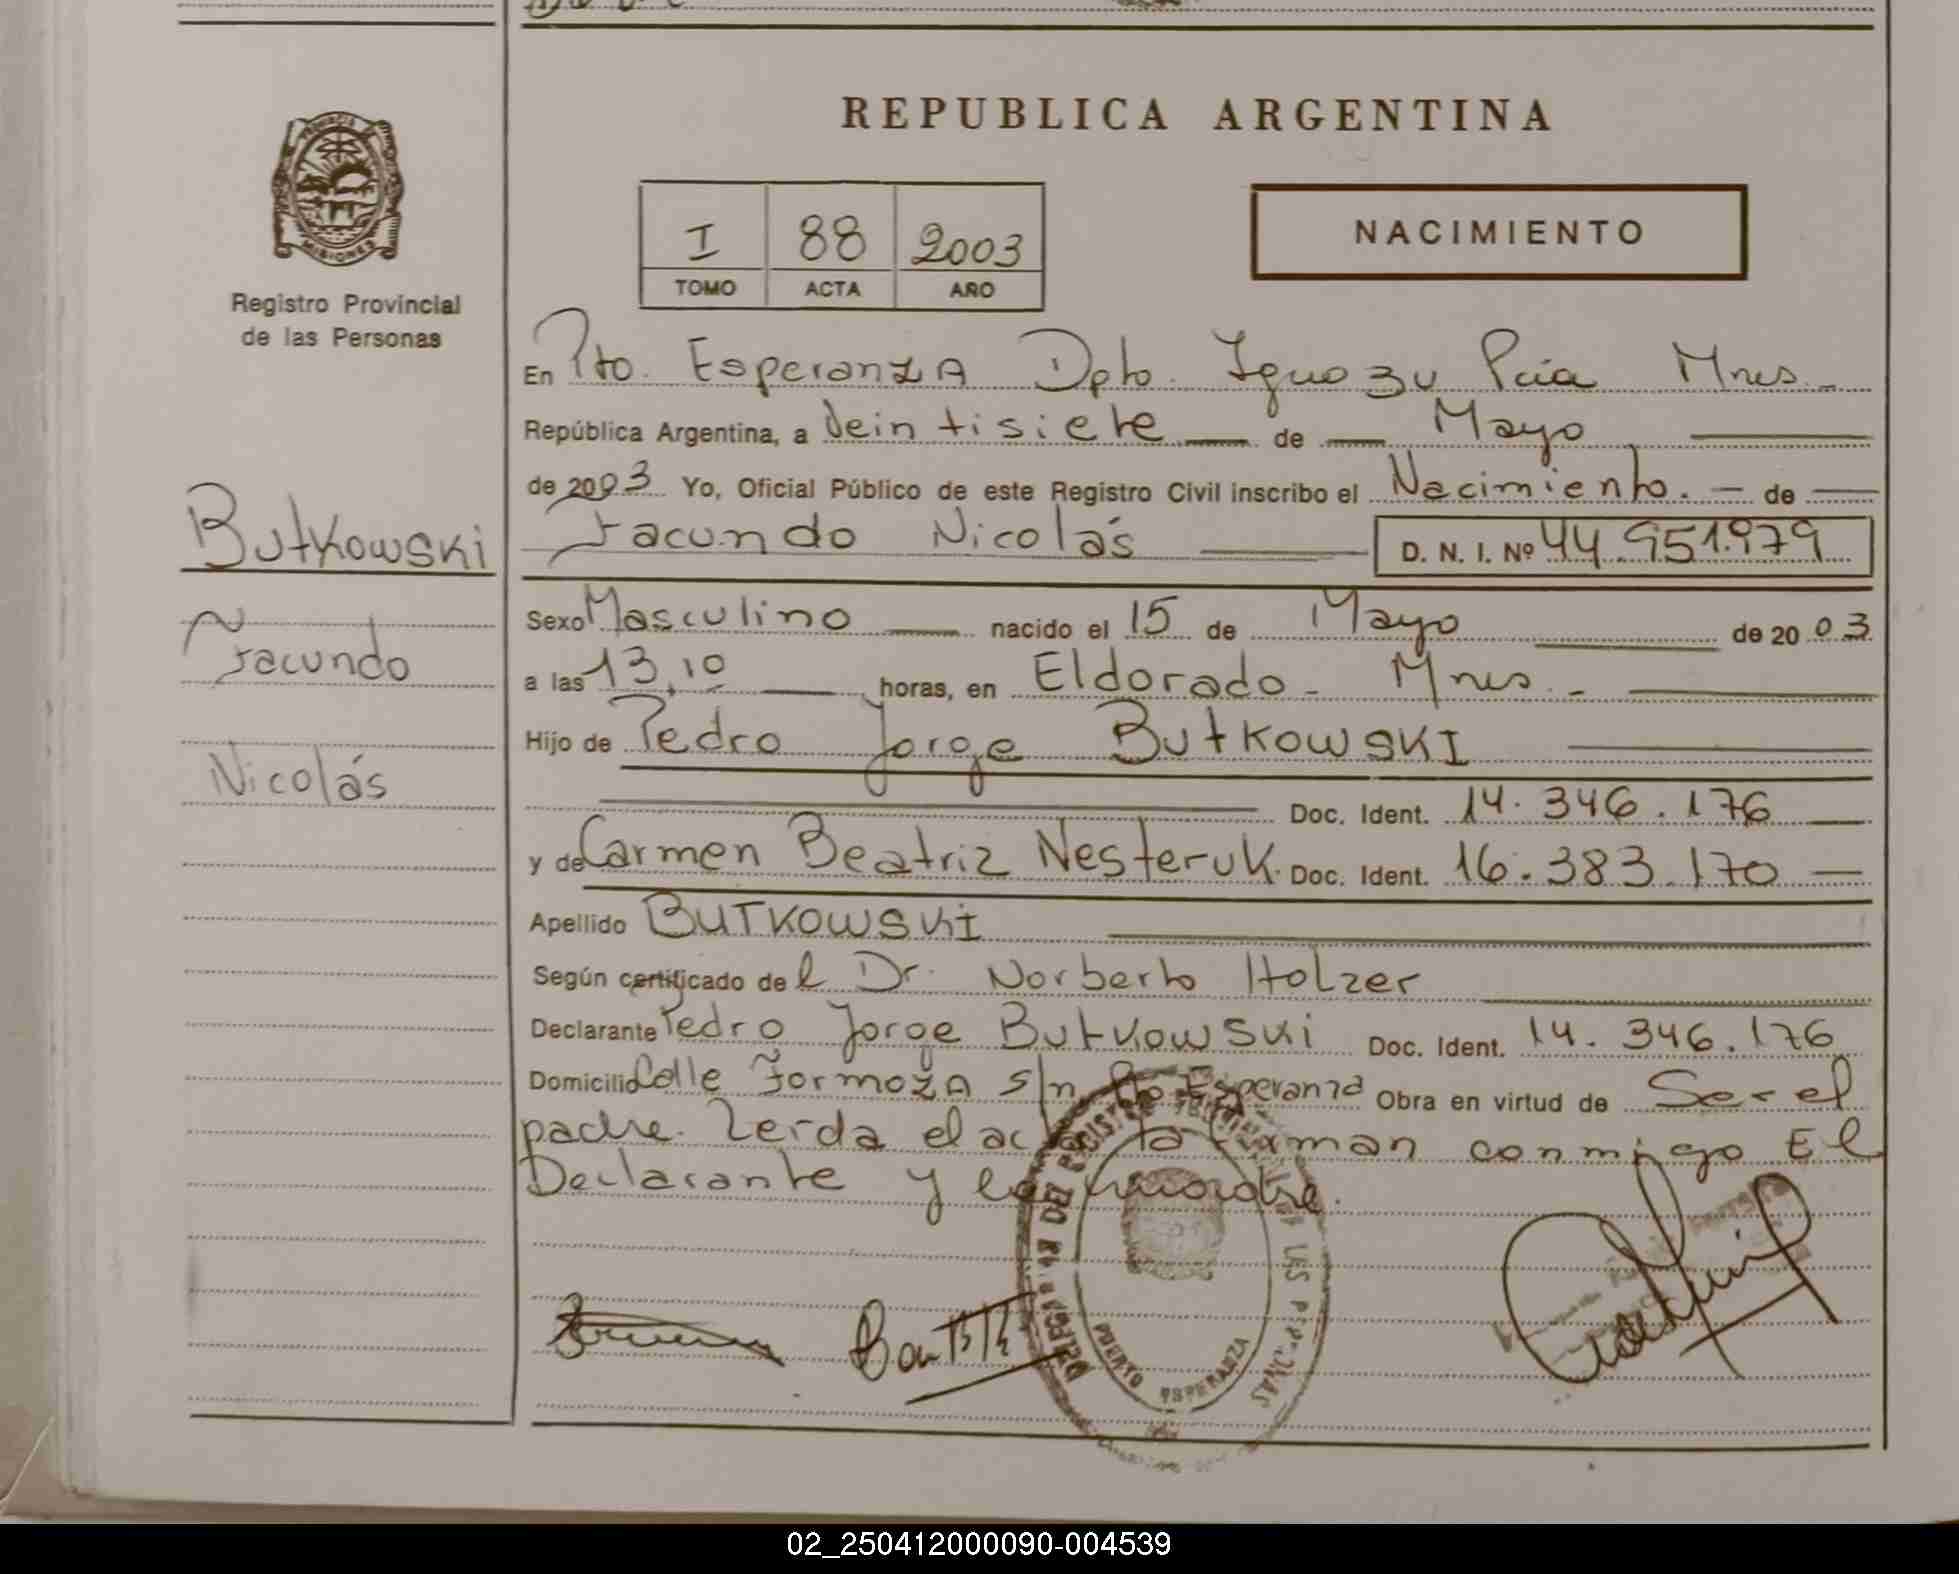 REPUBLICA ARGENTINA
PROVINCIA DE
MISIONES
Registro Provincial
de las Personas
I 88 2003
TOMO ACTA AÑO
NACIMIENTO
En Pto. Esperanza Dpto. Iguazu Pcia Mnes.
República Argentina, a Veintisiete de Mayo
de 2003 Yo, Oficial Público de este Registro Civil inscribo el Nacimiento. de
Facundo Nicolás D. N. I. Nº 44.951.979
Butkowski
Facundo
Nicolás
Sexo Masculino nacido el 15 de Mayo de 2003
a las 13,10 horas, en Eldorado - Mnes. -
Hijo de Pedro Jorge Butkowski
Doc. Ident. 14.346.176
y de Carmen Beatriz Nesteruk. Doc. Ident. 16.383.170
Apellido BUTKOWSKI
Según certificado del Dr. Norberto Holzer
Declarante Pedro Jorge Butkowski Doc. Ident. 14.346.176
Domicilio Calle Formoza s/n Pto Esperanza Obra en virtud de Ser el
padre. Leida el acta la firman conmigo El
Declarante y la madre.
PUERTO ESPERANZA
02_250412000090-004539